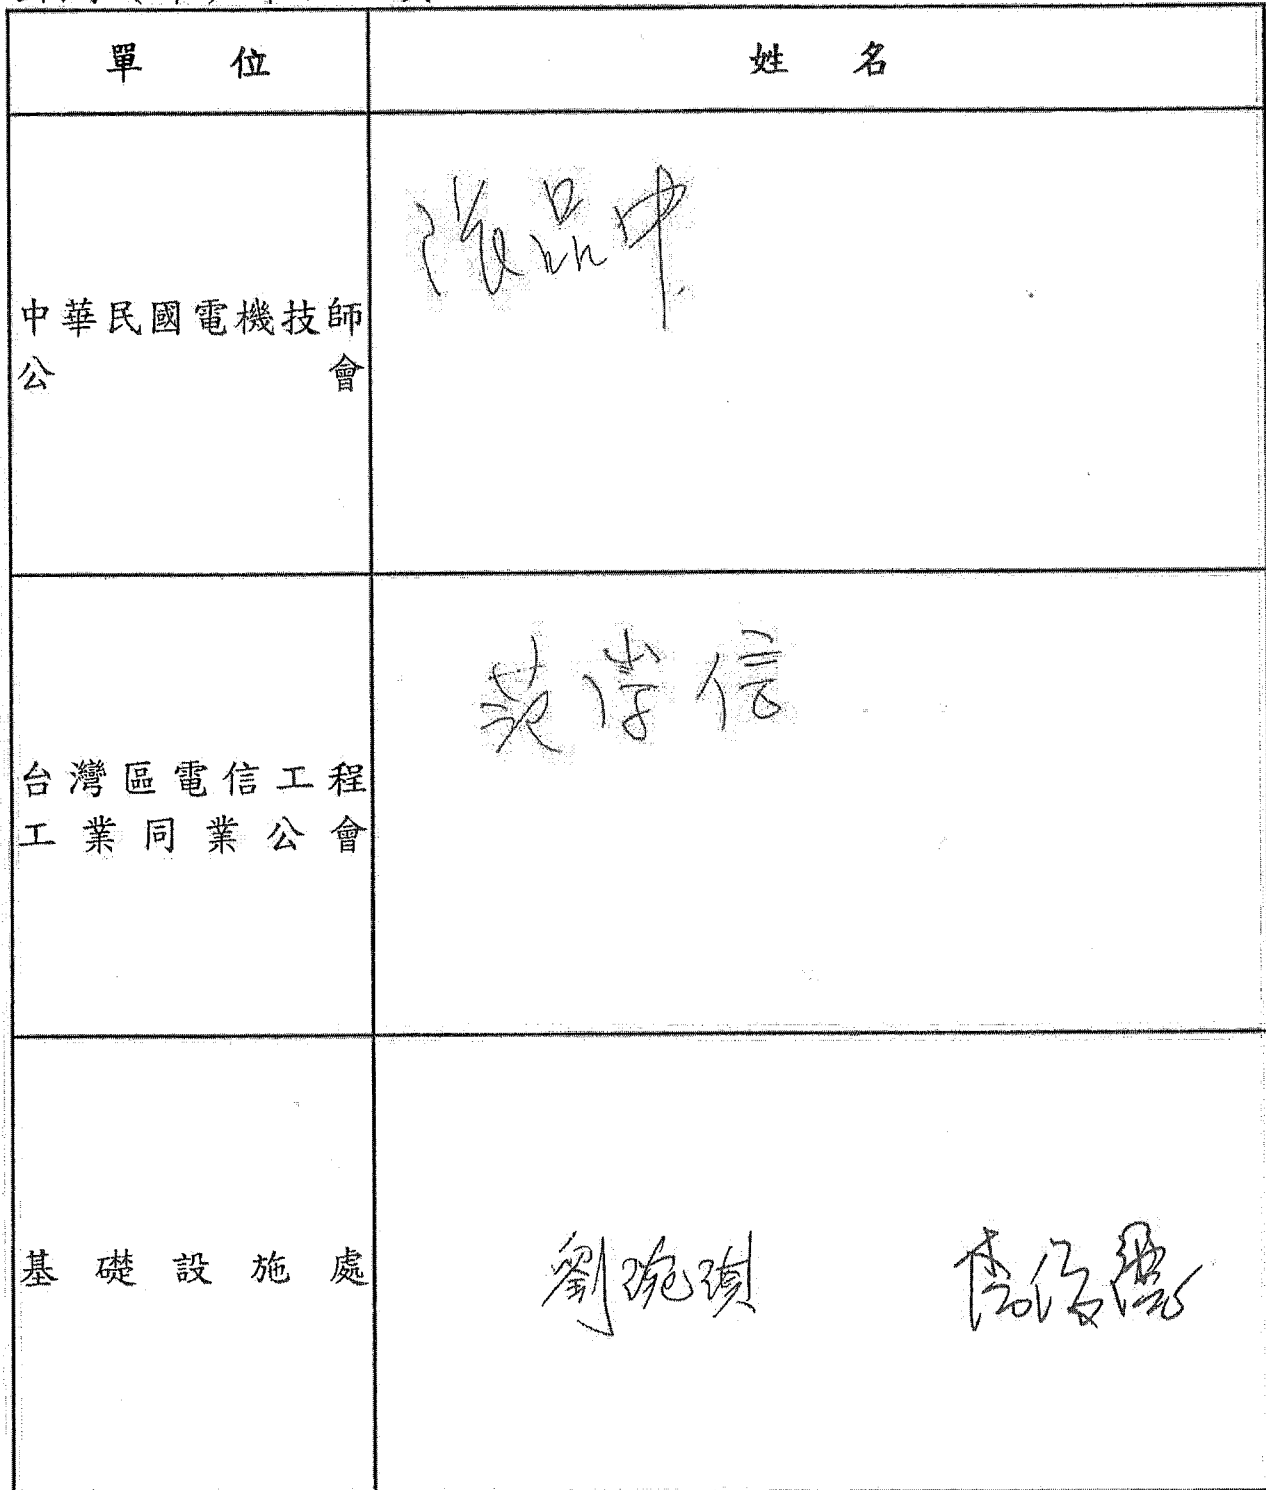 單位 姓名
中華民國電機技師
公會
品中
台灣區電信工程
工業同業公會
信
基礎設施處
劉琬瑱